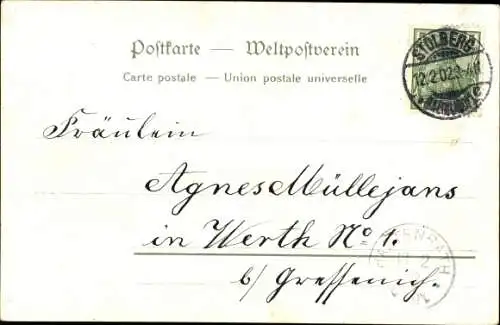 Postkarte — Weltpostverein
Carte postale — Union postale universelle
STOLBERG
12.2.02.3-4N
Fräulein
Agnes Müllejans
in Werth No 1.
b/ Gressenich.